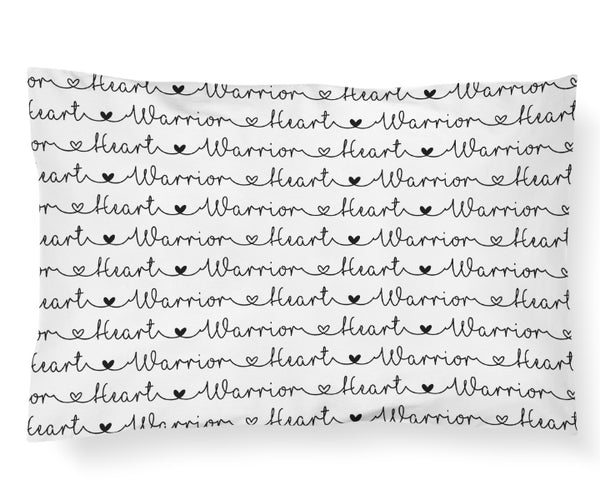 or ♡ Heart ♥ Warrior ♡ Heart ♥ Warrior ♡
Heart ♥ Warrior ♡ Heart ♥ Warrior ♡ Heart
or ♡ Heart ♥ Warrior ♡ Heart ♥ Warrior ♡
eart ♥ Warrior ♡ Heart ♥ Warrior ♡ Heart
or ♡ Heart ♥ Warrior ♡ Heart ♥ Warrior ♡
eart ♥ Warrior ♡ Heart ♥ Warrior ♡ Heart
or ♡ Heart ♥ Warrior ♡ Heart ♥ Warrior ♡
eart ♥ Warrior ♡ Heart ♥ Warrior ♡ Heart
or ♡ Heart ♥ Warrior ♡ Heart ♥ Warrior ♡
Heart ♥ Warrior ♡ Heart ♥ Warrior ♡ Heart
or ♡ Heart ♥ Warrior ♡ Heart ♥ Warrior ♡
Heart ♥ Warrior ♡ Heart ♥ Warrior ♡ Heart